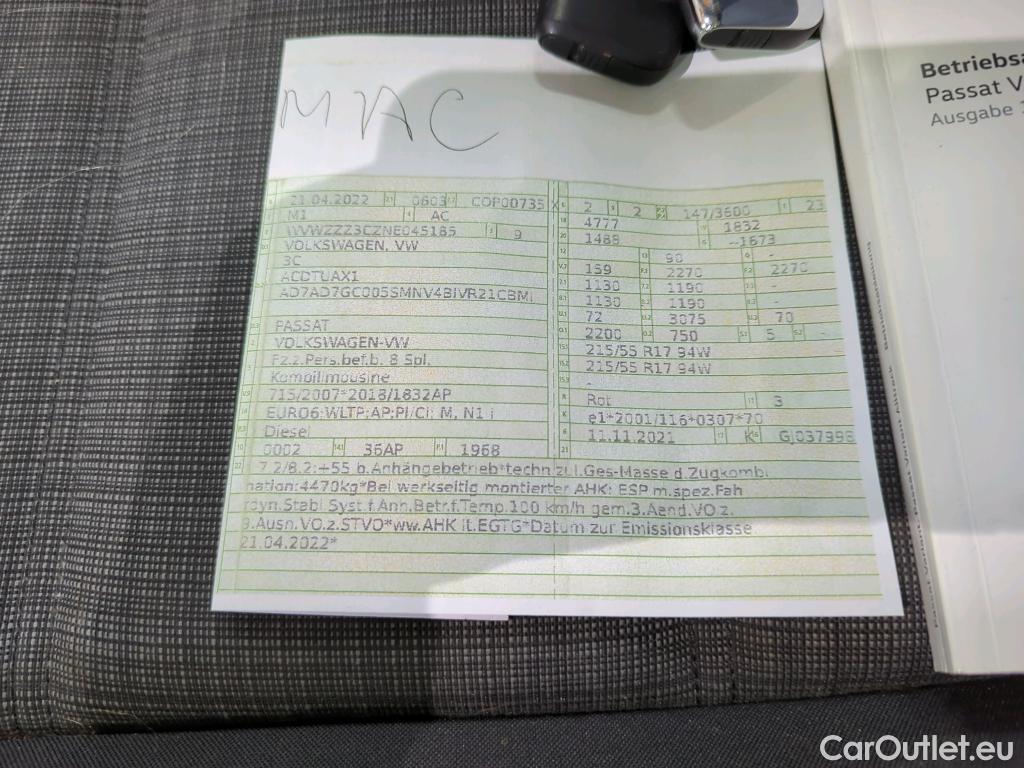 MAC
Betriebsa
Passat V
Ausgabe
21.04.2022 0603 COP00735 X 2 2 147/3600 23
M1 AC 4777 1832
WVWZZZ3CZNE045185 9 1488 --1673
VOLKSWAGEN, VW 90 -
3C 159 2270 2270
ACDTUAX1 1130 1190 -
AD7AD7GC005SMNV4BIVR21CBM 1130 1190 -
72 3075 70
PASSAT 2200 750 5 -
VOLKSWAGEN-VW 215/55 R17 94W
Fz.z.Pers.bef.b. 8 Spl. 215/55 R17 94W
Kombilimousine -
715/2007*2018/1832AP Rot 3
EURO6;WLTP;AP;PI/CI; M, N1 I e1*2001/116*0307*70
Diesel 11.11.2021 K GJ037998
0002 36AP 1968
7.2/8.2:+55 b.Anhängebetrieb*techn.zul.Ges-Masse d.Zugkombi
nation:4470kg*Bei werkseitig montierter AHK: ESP m.spez.Fah
rdyn.Stabl Syst.f.Anh.Betr.f.Temp.100 km/h gem.3.Aend.VO.z.
9.Ausn.VO.z.STVO*ww.AHK lt.EGTG*Datum zur Emissionsklasse
21.04.2022*
Passat Variant, Passat Variant Alltrack Betriebsanleitung
CarOutlet.eu